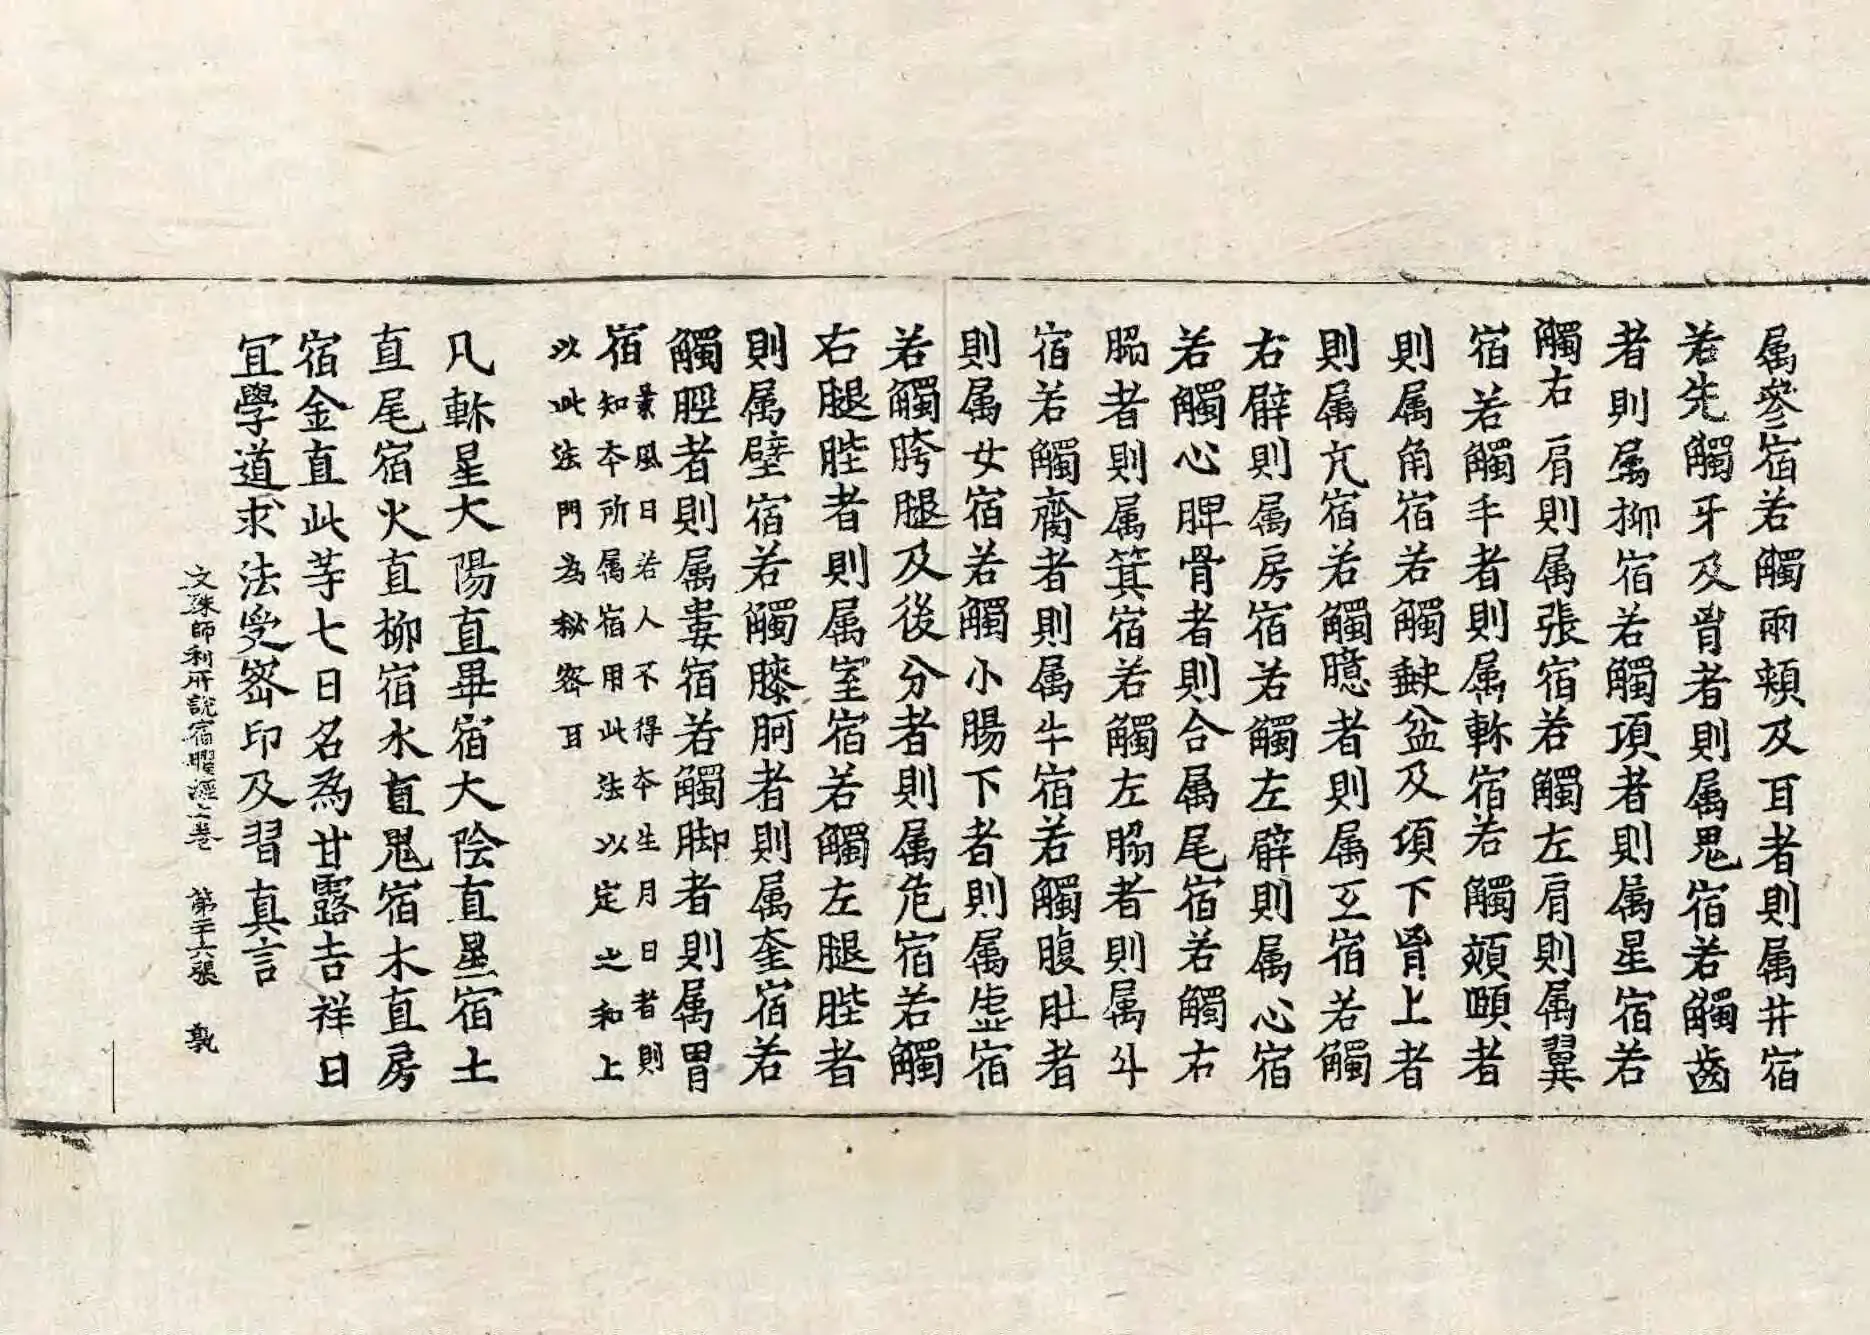 属參宿若觸兩頰及耳者則属井宿
若先觸牙及骨者則属鬼宿若觸齒
者則属柳宿若觸項者則属星宿若
觸右肩則属張宿若觸左肩則属翼
宿若觸手者則属軫宿若觸頦頤者
則属角宿若觸缺盆及項下骨上者
則属亢宿若觸臆者則属互宿若觸
右臂則属房宿若觸左臂則属心宿
若觸心脾骨者則合属尾宿若觸右
脇者則属箕宿若觸左脇者則属斗
宿若觸齊者則属牛宿若觸腹肚者
則属女宿若觸小腸下者則属虛宿
若觸胯腿及後分者則属危宿若觸
右腿䏶者則属室宿若觸左腿䏶者
則属壁宿若觸膝胻者則属奎宿若
觸脛者則属婁宿若觸脚者則属胃
宿
景風日若人不得本生月日者則
知本所属宿用此法以定之和上
以此法門為秘密耳
凡軫星大陽直畢宿大陰直星宿土
直尾宿火直柳宿水直鬼宿木直房
宿金直此等七日名為甘露吉祥日
冝學道求法受密印及習真言
文殊師利所說宿曜經上卷 第二十六張 乳